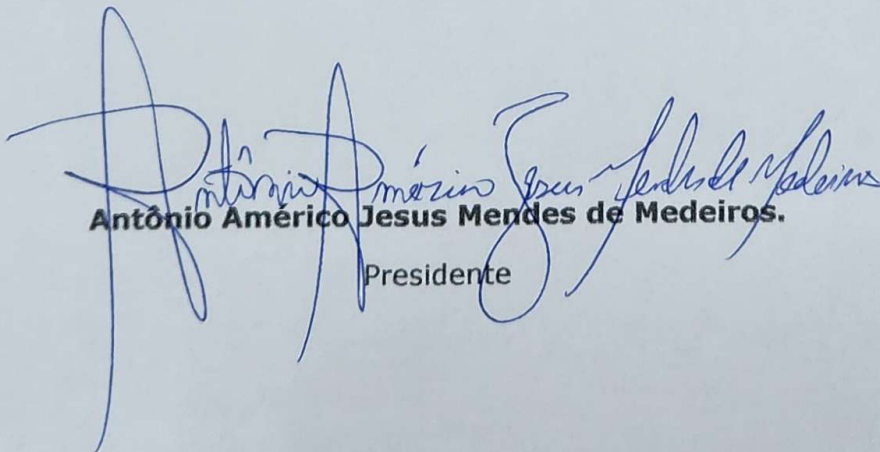 Antônio Américo Jesus Mendes de Medeiros
Antônio Américo Jesus Mendes de Medeiros.
Presidente